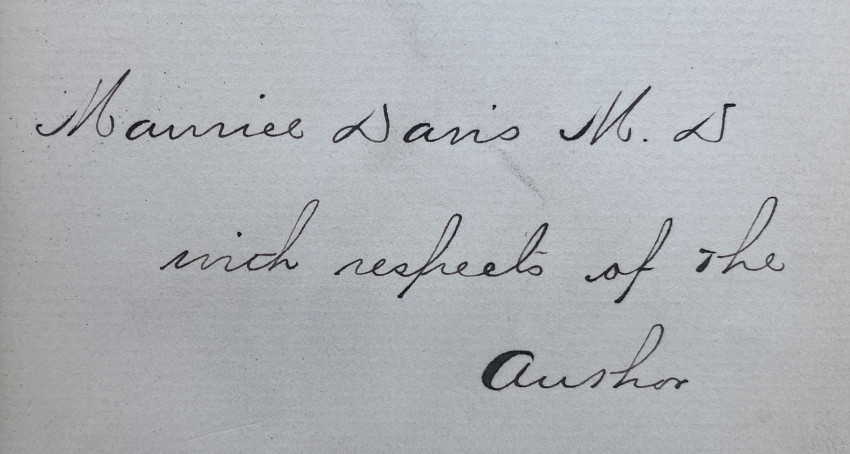 Maurice Davis M. D
with respects of the
Author